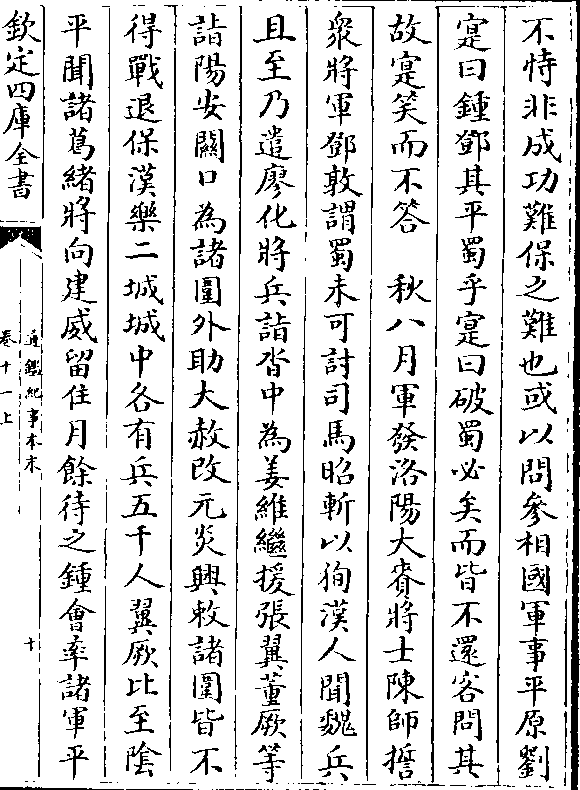 不恃非成功難保之難也或以問參相國軍事平原劉
寔曰鍾鄧其平蜀乎寔曰破蜀必矣而皆不還客問其
故寔笑而不答　秋八月軍發洛陽大賚將士陳師誓
衆將軍鄧敦謂蜀未可討司馬昭斬以狥漢人聞魏兵
且至乃遣廖化將兵詣沓中為姜維繼援張翼董厥等
詣陽安關口為諸圍外助大赦改元炎興敕諸圍皆不
得戰退保漢樂二城城中各有兵五千人翼厥比至陰
平聞諸葛緒將向建威留住月餘待之鍾會率諸軍平
欽定四庫全書
通鑑紀事本末
卷十一上
十